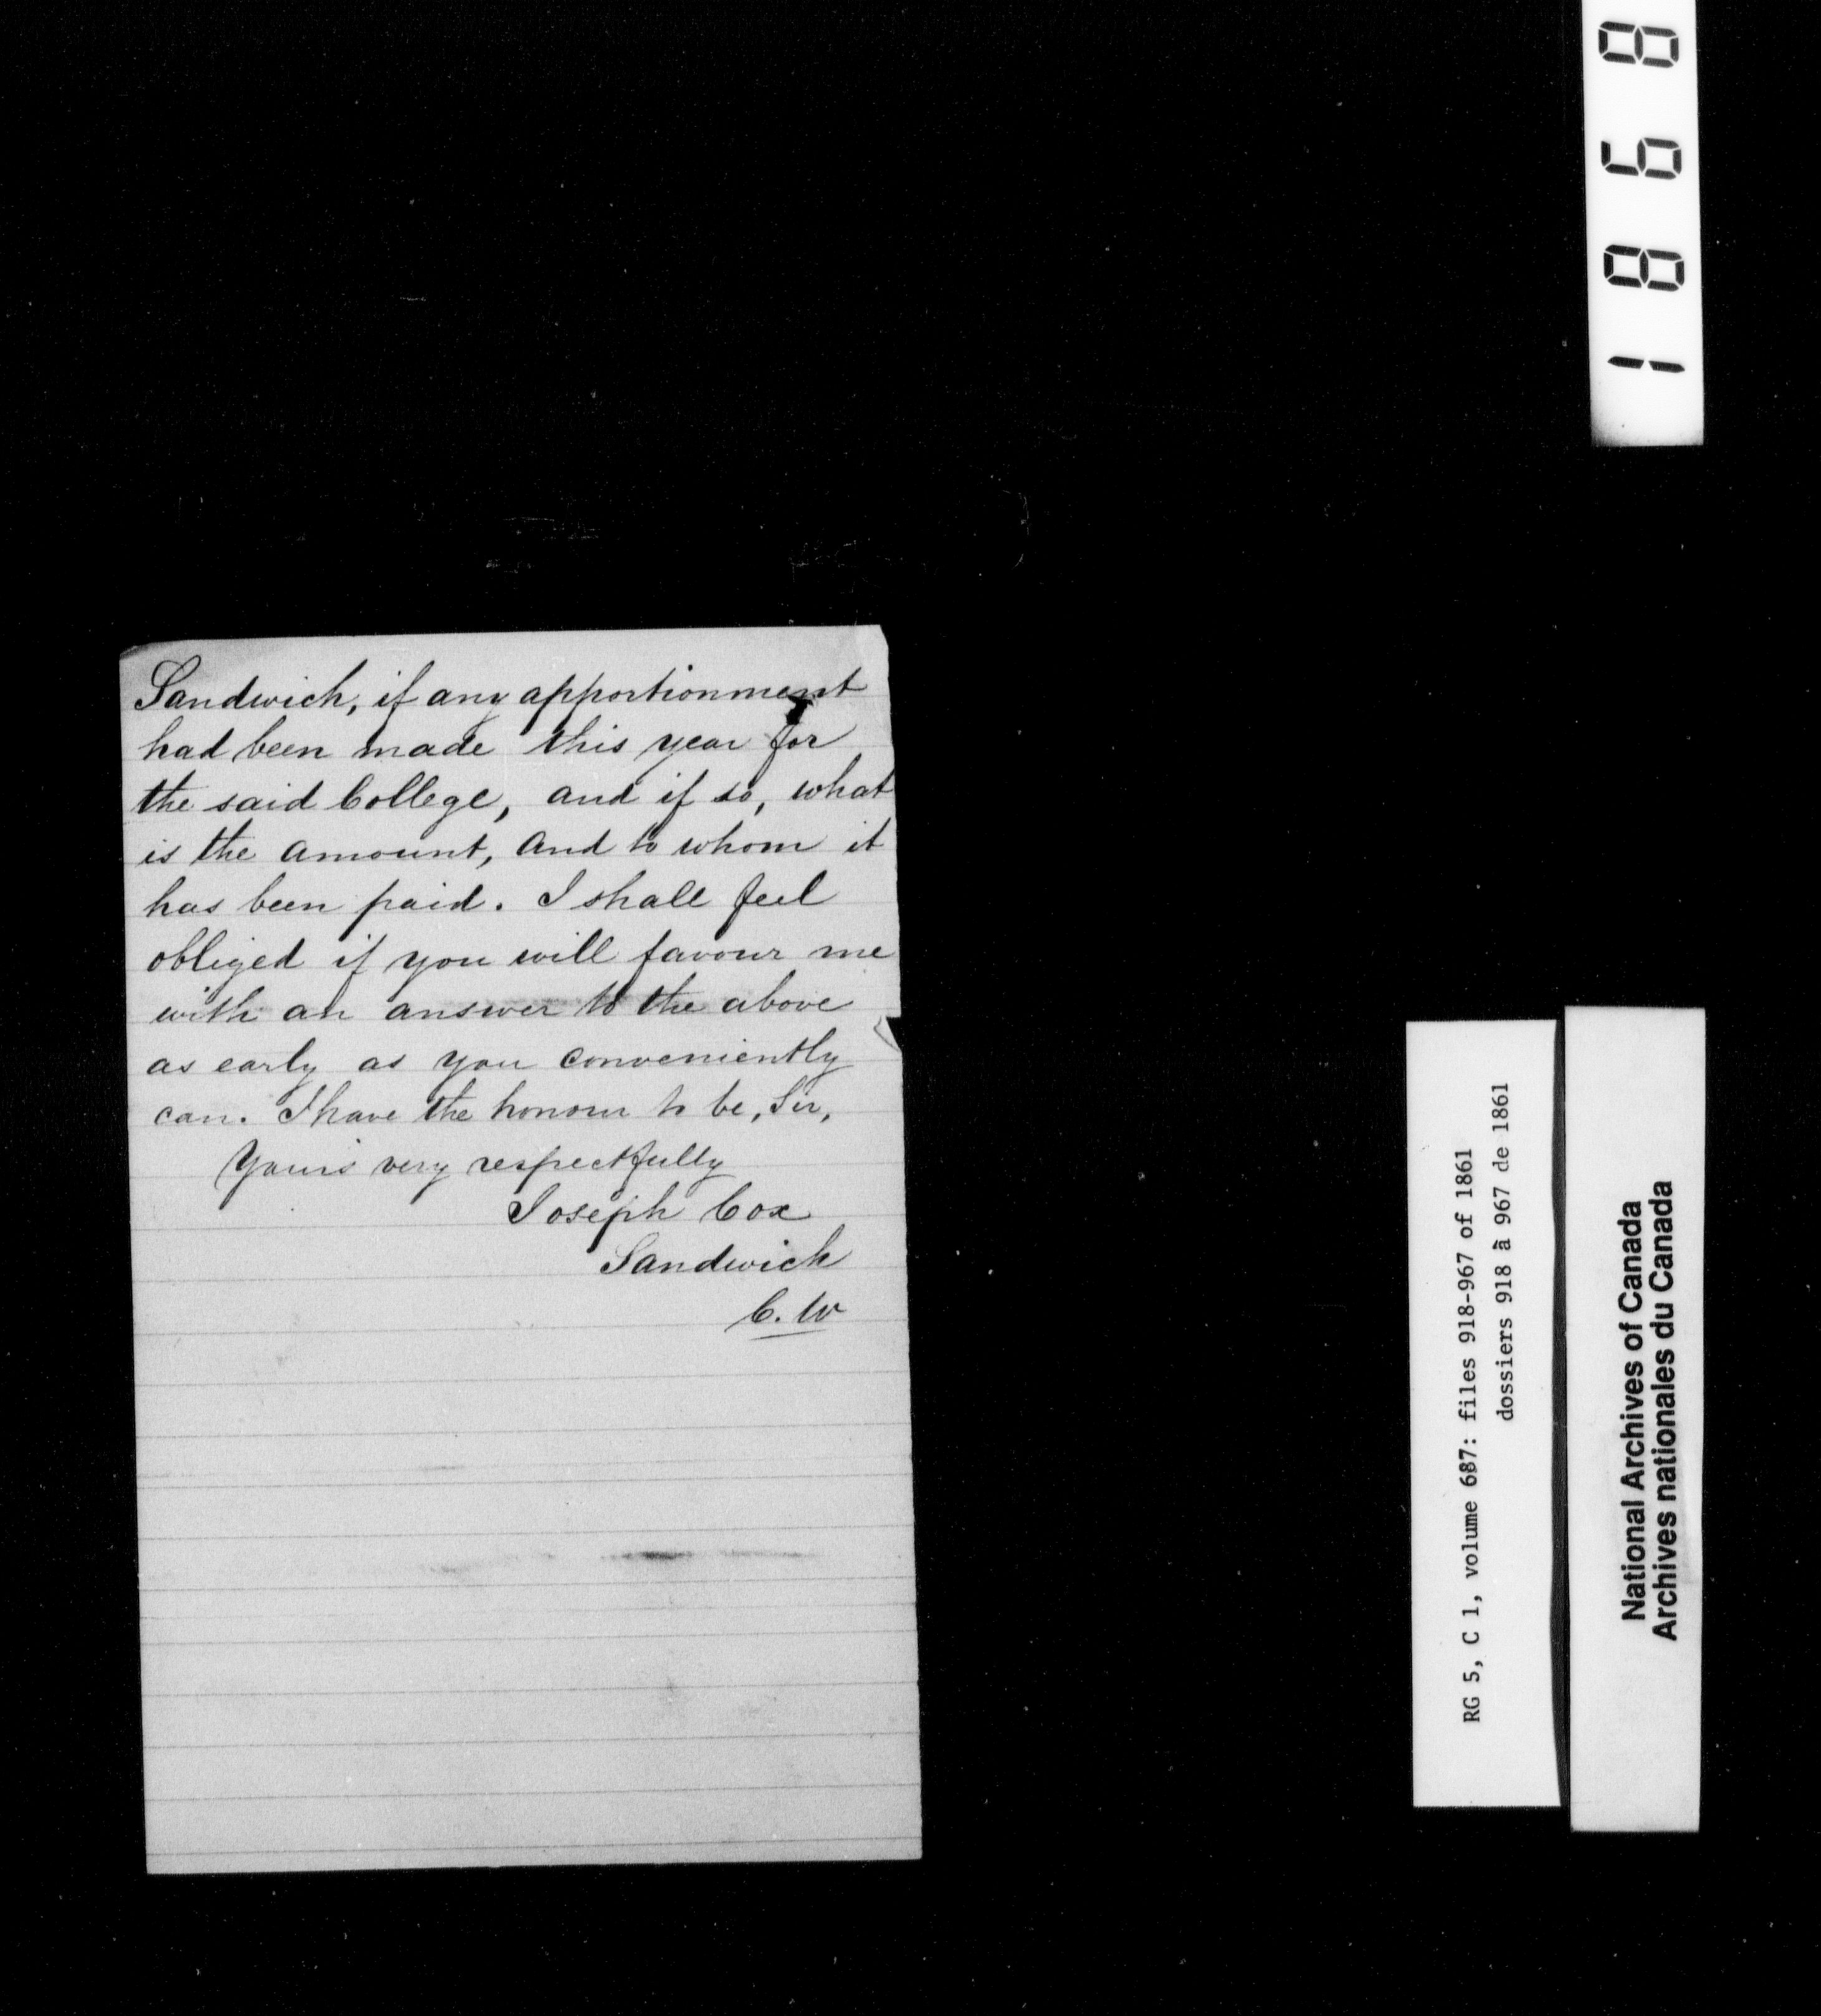 Sandwich, if any apportionment
had been made this year for
the said College, and if so, what
is the amount, and to whom it
has been paid. I shall feel
obliged if you will favour me
with an answer to the above
as early as you conveniently
can. I have the honour to be, Sir,
Yours very respectfully
Joseph Cox
Sandwich
C. W
1868
RG 5, C 1, volume 687: files 918-967 of 1861
dossiers 918 à 967 de 1861
National Archives of Canada
Archives nationales du Canada